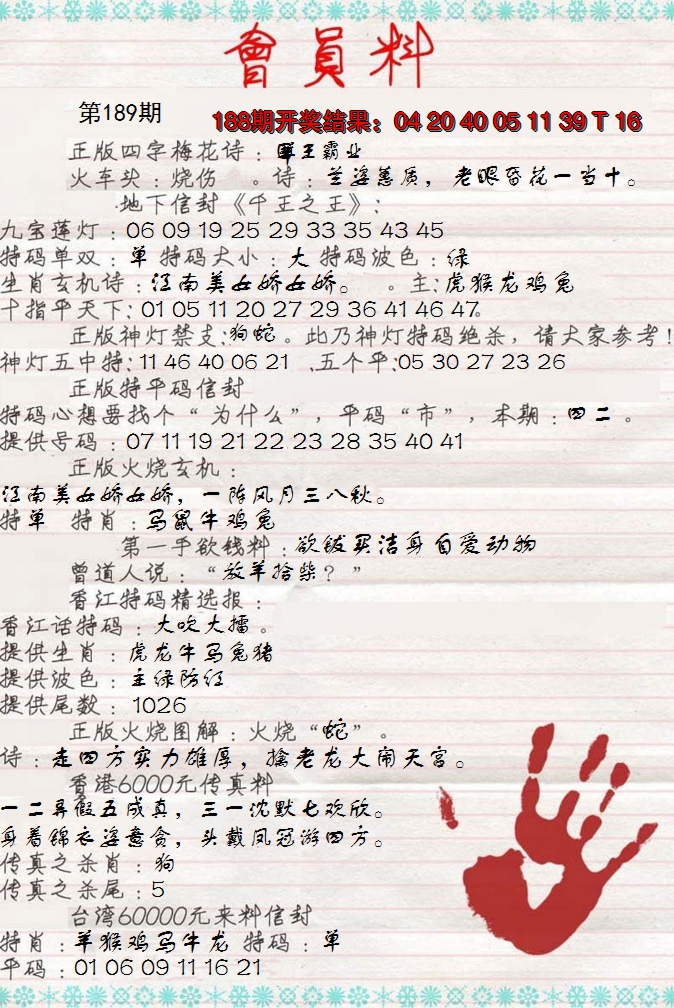 會員料
第189期
188期开奖结果：04 20 40 05 11 39 T 16
正版四字梅花诗：王霸业
火车头：烧伤 。诗：兰姿蕙质，老眼昏花一当十。
地下信封《千王之王》：
九宝莲灯：06 09 19 25 29 33 35 43 45
特码单双：单 特码大小：大 特码波色：绿
生肖玄机诗：江南美女娇女娇。 。主：虎猴龙鸡兔
十指平天下：01 05 11 20 27 29 36 41 46 47.
正版神灯禁支：狗蛇。此乃神灯特码绝杀，请大家参考！
神灯五中特：11 46 40 06 21 .五个平：05 30 27 23 26
正版特平码信封
特码心想要找个“为什么”，平码“市”，本期：四二。
提供号码：07 11 19 21 22 23 28 35 40 41
正版火烧玄机：
江南美女娇女娇，一阵风月三八秋。
特单 特肖：马鼠牛鸡兔
第一手欲钱料：欲钱买洁身自爱动物
曾道人说：“放羊拾柴？”
香江特码精选报：
香江话特码：大吹大擂。
提供生肖：虎龙牛马兔猪
提供波色：主绿防红
提供尾数：1026
正版火烧图解：火烧“蛇”。
诗：走四方实力雄厚，擒老龙大闹天宫。
香港6000元传真料
一二寻假五成真，三一沈默七欢欣。
身着锦衣姿意贪，头戴凤冠游四方。
传真之杀肖：狗
传真之杀尾：5
台湾60000元来料信封
特肖：羊猴鸡马牛龙 特码：单
平码：01 06 09 11 16 21